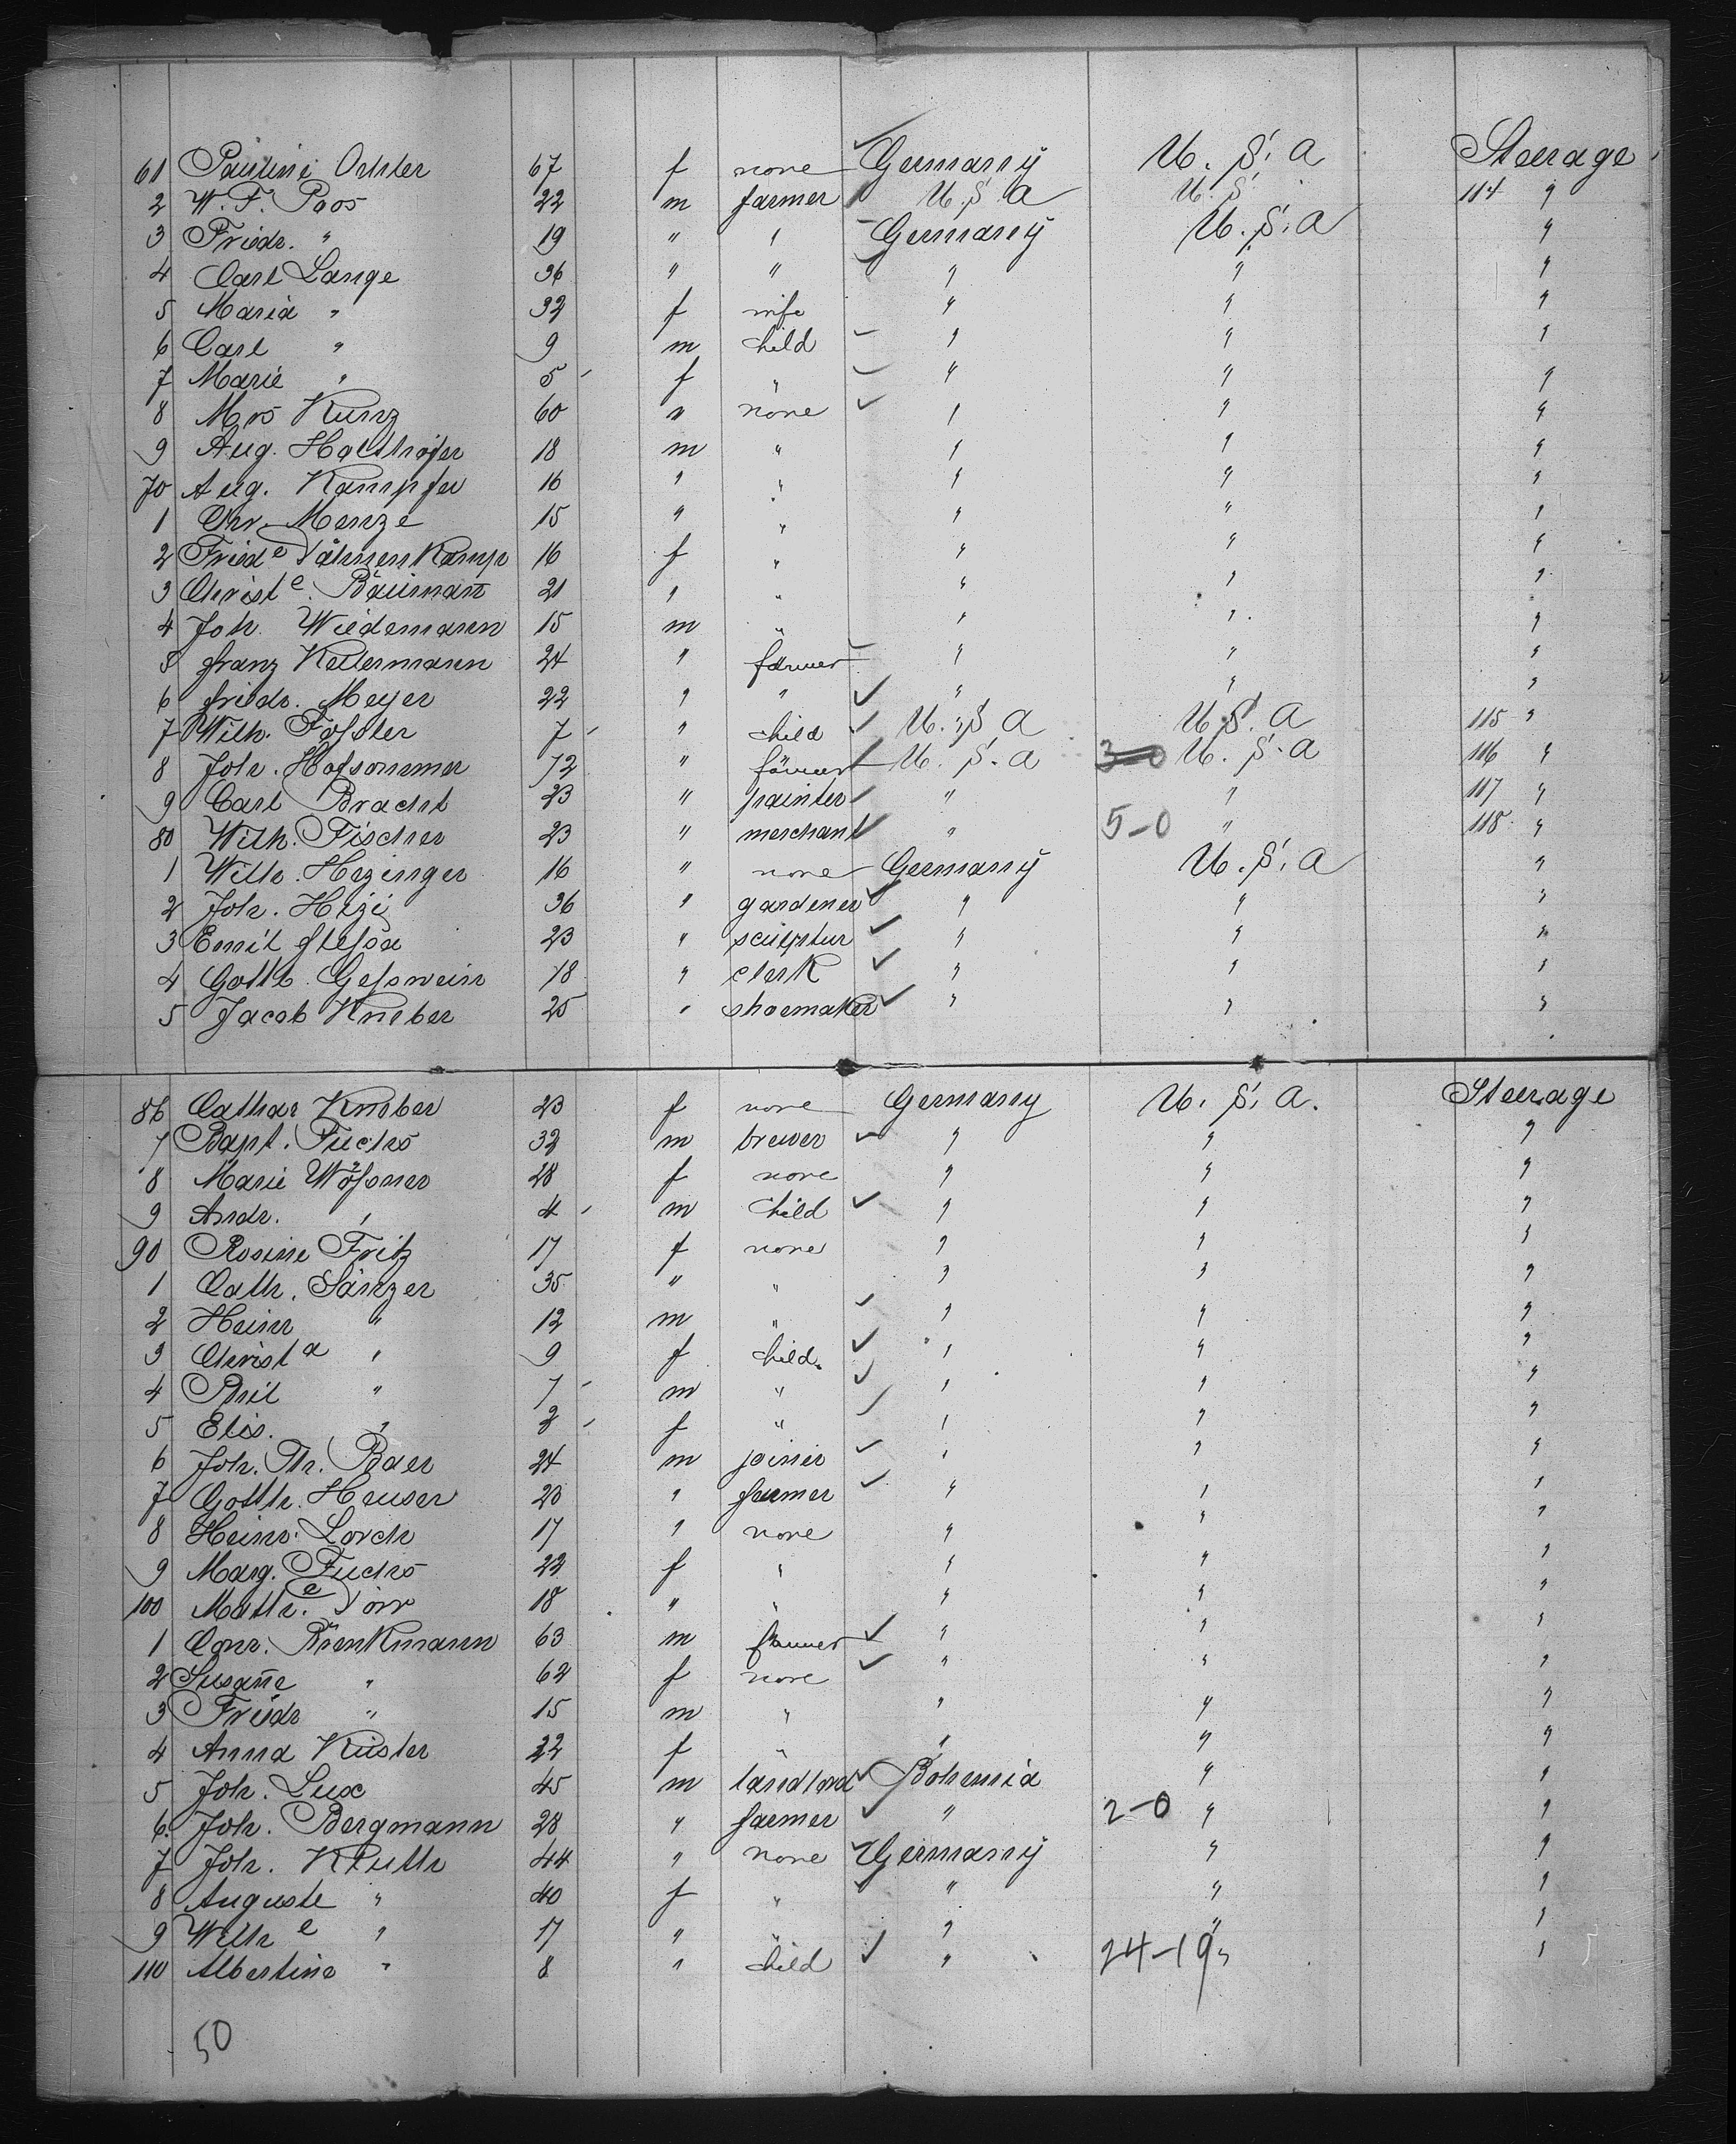 61 Pauline Ochsler 67 f none Germany U. S. A Steerage
2 W. F. Poos 22 m farmer U. S. A U. S. 114 "
3 Friedr. " 19 " " Germany U. S. A "
4 Carl Lange 36 " " " " "
5 Maria " 32 f wife " " "
6 Carl " 9 m child " " "
7 Marie " 5 f " " " "
8 Mrs Kunz 60 " none " " "
9 Aug. Holthöfer 18 m " " " "
70 Aug. Kampfer 16 " " " " "
1 Chr. Menze 15 " " " " "
2 Fried e 16 f " " " "
3 Christ e. Bäumañ 21 " " " " "
4 Joh. Wiedemann 15 m " " " "
5 Franz Kellermann 24 " farmer " " "
6 Friedr. Meyer 22 " " " " "
7 Wilh. 7 " child U. S. A U. S. A 115 "
8 Joh. Hofsommer 72 " farmer U. S. A 3-0 U. S. A 116 "
9 Carl Bracht 23 " painter " " 117 "
80 Wilh. Fischer 23 " merchant " 5-0 " 118 "
1 Wilh. Hezinger 16 " none Germany U. S. A "
2 Joh. Hezi 36 " gardener " " "
3 Emil 23 " sculptur " " "
4 Gottl. Geſswein 18 " clerk " " "
5 Jacob Knieber 25 " shoemaker " " "
86 Cathar Knieber 23 f none Germany U. S. A. Steerage
7 Bapt. Fuchs 32 m brewer " " "
8 Marie Wöſsner 28 f none " " "
9 Andr. " 4 m child " " "
90 Rosine Fritz 17 f none " " "
1 Cath. Sänzer 35 " " " " "
2 Heinr " 12 m " " " "
3 Christ a " 9 f child. " " "
4 Phil " 7 m " " " "
5 Elis. " 2 f " " " "
6 Joh. Ph. Baer 24 m joiner " " "
7 Gotth. Heuser 23 " farmer " " "
8 Heinr. Lorch 17 " none " " "
9 Marg. Fuchs 22 f " " " "
100 Math. e Dörr 18 " " " " "
1 Conr. Brenkmann 63 m farmer " " "
2 Susañe " 62 f none " " "
3 Friedr " 15 m " " " "
4 Anna Küster 22 f " " " "
5 Joh. Lux 45 m landlord Bohemia " "
6. Joh. Bergmann 28 " farmer " 2-0 " "
7 Joh. Kluth 44 " none Germany " "
8 Auguste " 40 f " " " "
9 Wilh e " 17 " " " " "
110 Albertine " 8 " child " 24-19 " "
50